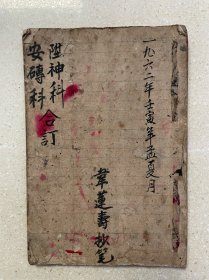 一九六二年壬寅年孟夏月
陞神科
安磚科
合訂
韋蓮壽抄笔